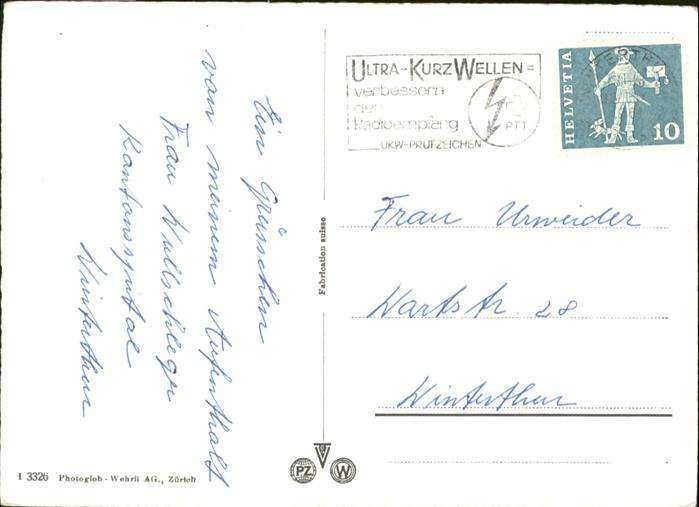 Ein Grüsschen
von meinem Aufenthalt
Frau Wullschleger
Kantonsspital
Winterthur
Fabrication suisse
ULTRA-KURZ WELLEN=
verbessern
den
Radioempfang
UKW-PRÜFZEICHEN
PTT
HELVETIA
10
Frau Urweider
Wartstr. 28
Winterthur
PZ
W
1 3326 Photoglob-Wehrli AG., Zürich